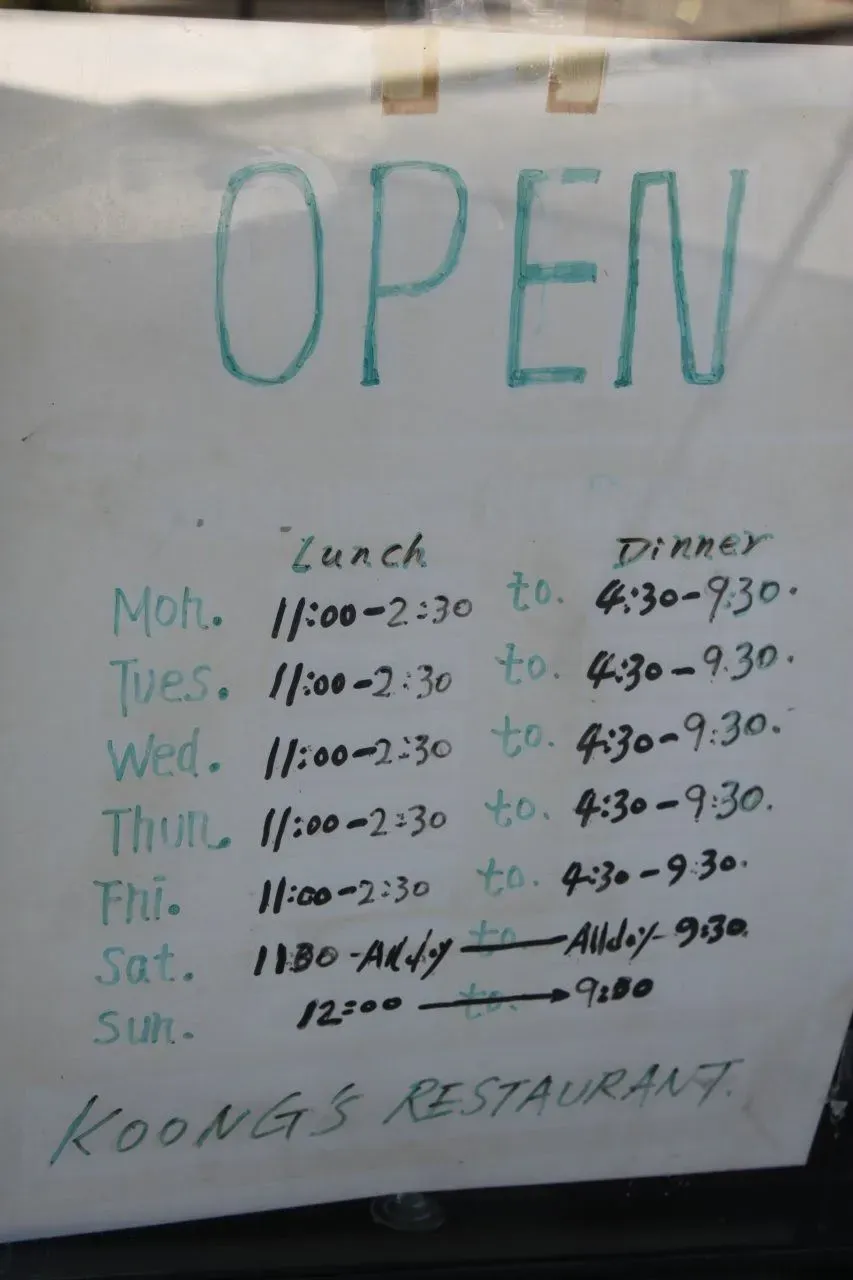 OPEN
Lunch Dinner
Mon. 11:00-2:30 to. 4:30-9:30.
Tues. 11:00-2:30 to. 4:30-9:30.
Wed. 11:00-2:30 to. 4:30-9:30.
Thur. 11:00-2:30 to. 4:30-9:30.
Fri. 11:00-2:30 to. 4:30-9:30.
Sat. -Allday to Allday- 9:30.
Sun. 12:00 to. → 9:00
KOONG'S RESTAURANT.